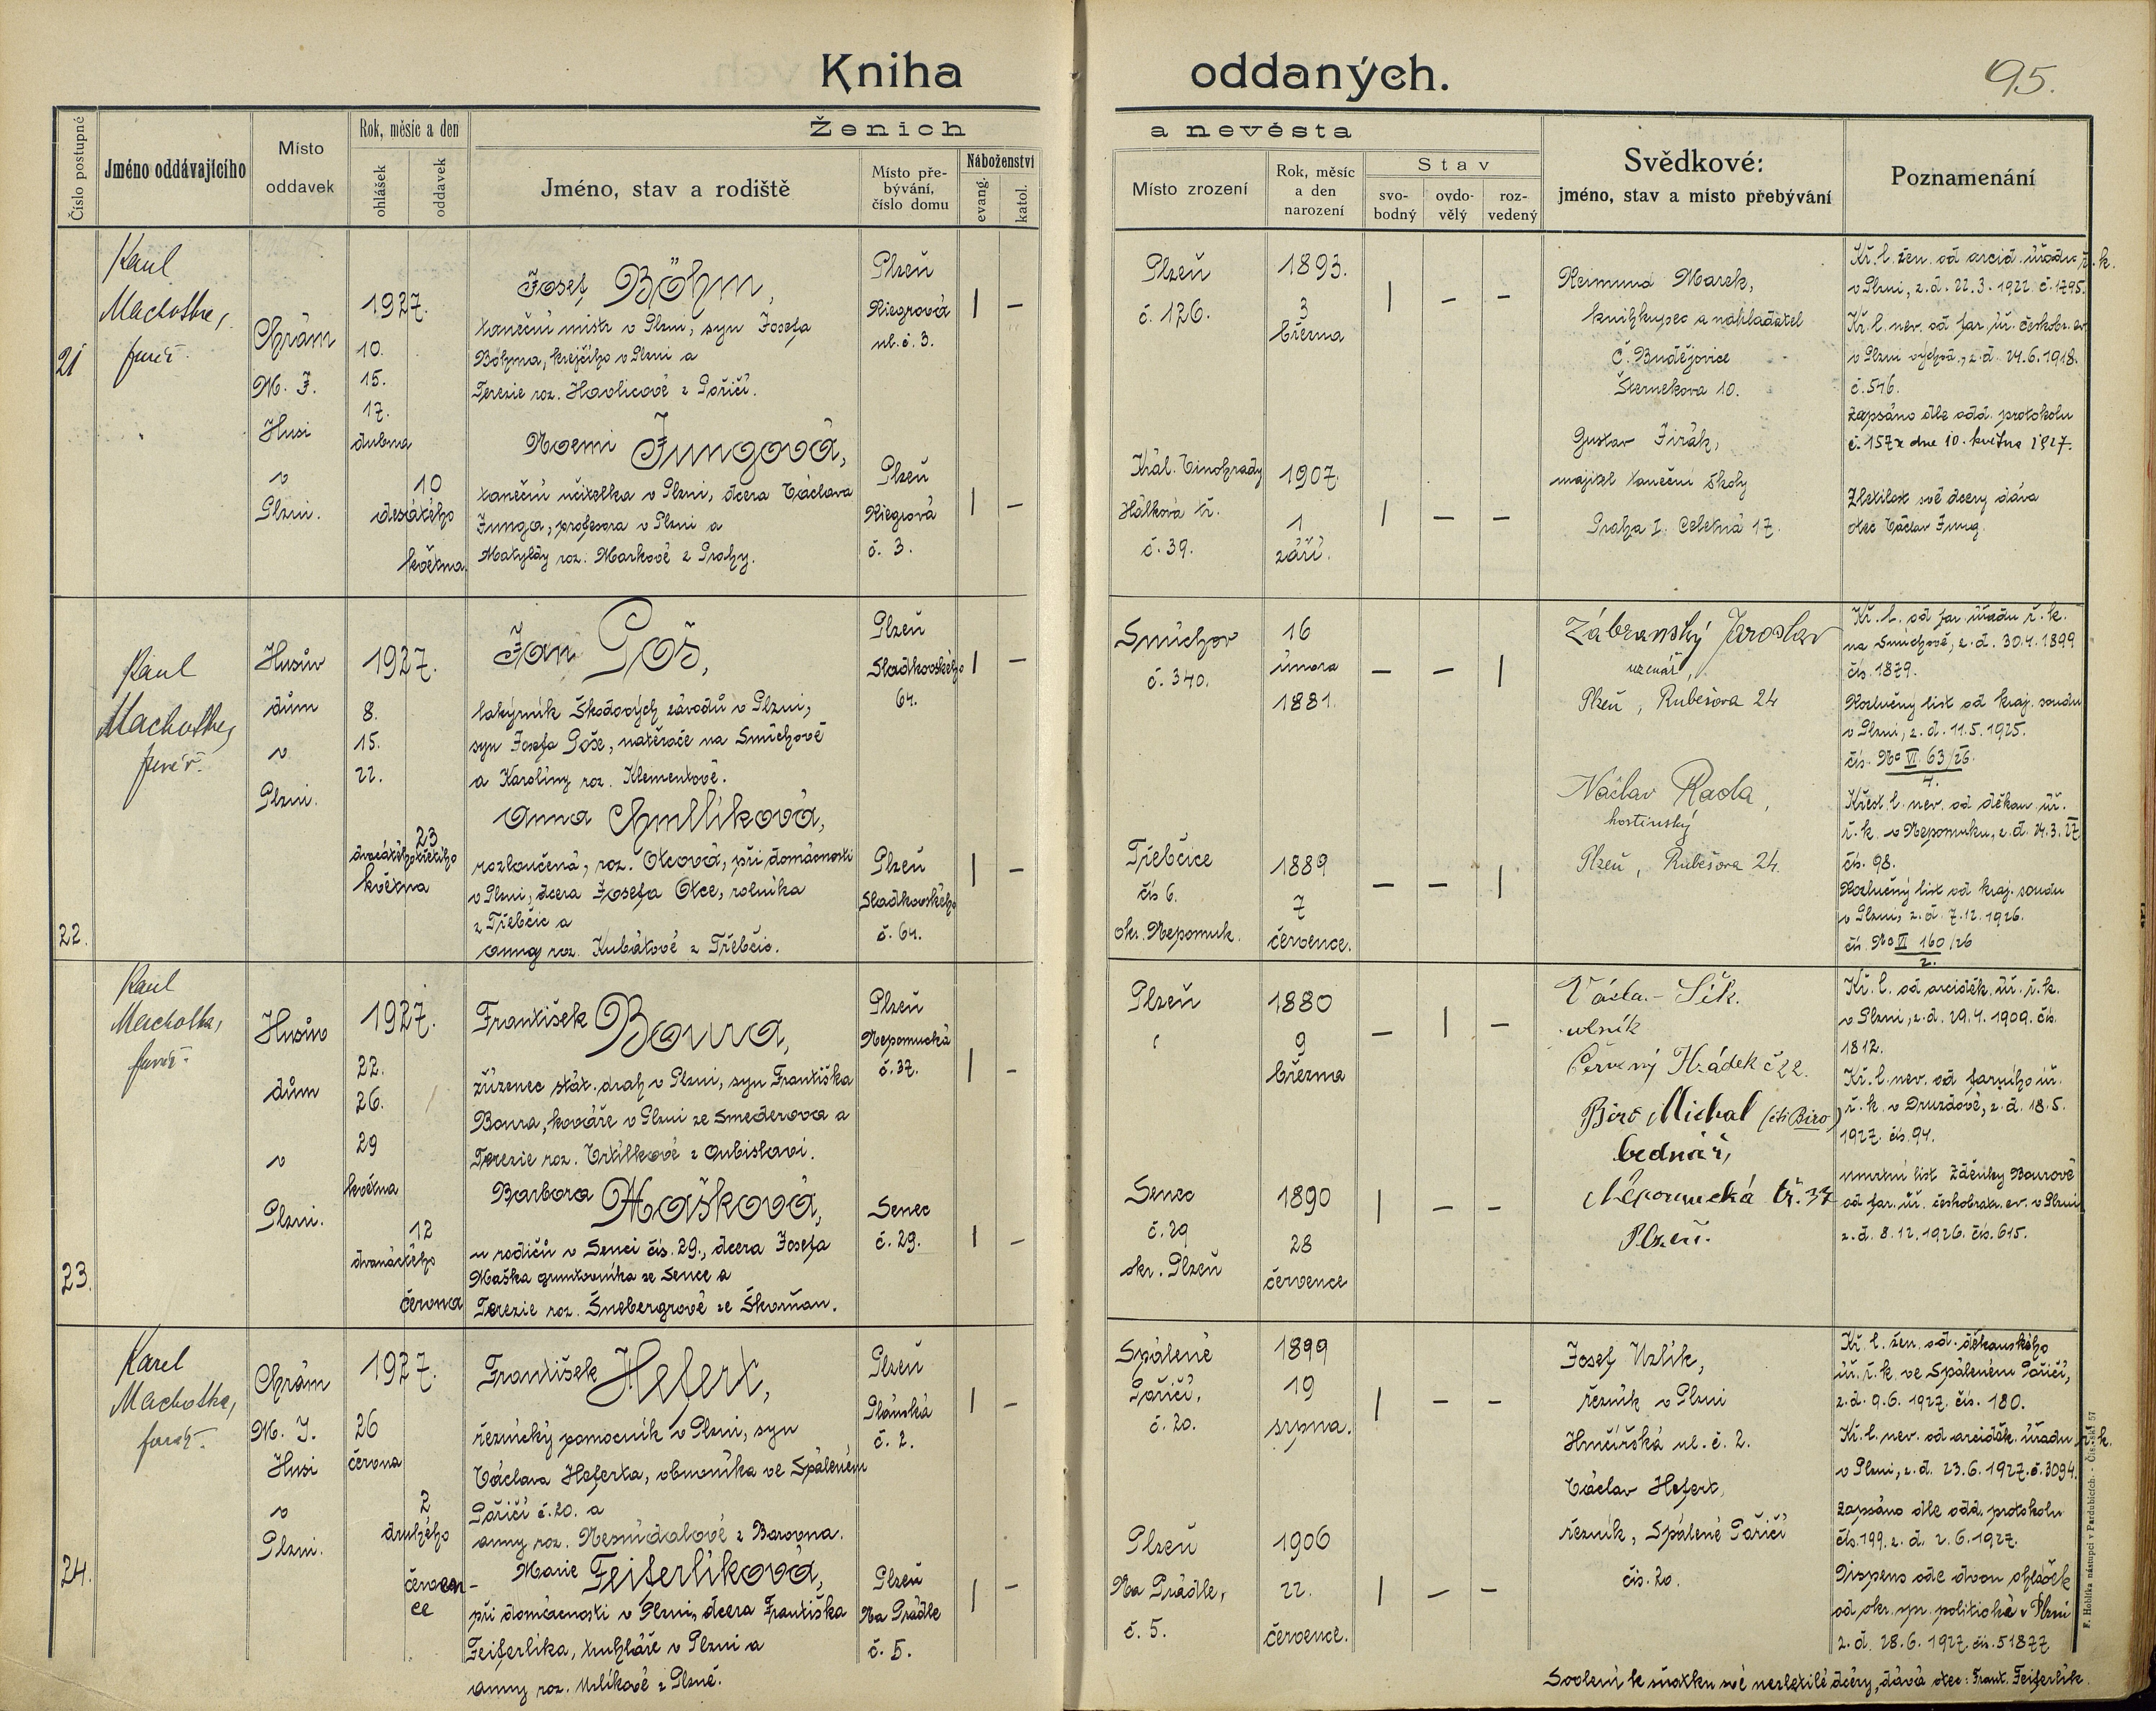 Kniha oddaných.
95.
Číslo postupné
Jméno oddávajícího
Místo oddavek
Rok, měsíc a den
ohlášek
oddavek
Ženich a nevěsta
Jméno, stav a rodiště
Místo pře-
bývání,
číslo domu
Náboženství
evang.
katol.
Místo zrození
Rok, měsíc
a den
narození
Stav
svo-
bodný
ovdo-
vělý
roz-
vedený
Svědkové:
jméno, stav a misto přebývání
Poznamenání
21
Karel
Machotka,
farář.
Chrám
M. J.
Husi
v
Plzni.
1927.
10.
15.
17.
dubna
10
desátého
května.
Josef Böhm,
taneční mistr v Plzni, syn Josefa
Böhma, krejčího v Plzni a
Terezie roz. Havlicové z Poříčí.
Plzeň
Riegrova
ul. č. 3.
| –
Plzeň
č. 126.
1893.
3
března
| – –
Noemi Jungová,
taneční učitelka v Plzni, dcera Václava
Junga, profesora v Plzni a
Matyldy roz. Markové z Prahy.
Plzeň
Riegrova
č. 3.
| –
Král. Vinohrady
Hálkova tř.
č. 39.
1907.
1
září.
| – –
Reimund Marek,
knihkupec a nakladatel
Č. Budějovice
Šternekova 10.
Gustav Jirák,
majitel taneční školy
Praha I. Celetná 17.
Kř. l. žen. od arcid. úřadu ř. k.
v Plzni, z. d. 22. 3. 1922 č. 1795.
Kř. l. nev. od far. úř. českobr. ev.
v Plzni východ., z. d. 24. 6. 1918.
č. 546.
Zapsáno dle odd. protokolu
č. 157 z dne 10. května 1927.
Zletilost své dcery dává
otec Václav Jung.
22.
Karel
Machotka,
farář.
Husův
dům
v
Plzni.
1927.
8.
15.
22.
23
dvacátého třetího
května
Jan Goš,
lakýrník Škodových závodů v Plzni,
syn Josefa Goše, natěrače na Smíchově
a Karoliny roz. Klementové.
Plzeň
Sladkovského
64.
| –
Smíchov
č. 340.
16
února
1881.
– – |
Anna Chmllíková,
rozloučená, roz. Otcová, při domácnosti
v Plzni, dcera Josefa Otce, rolníka
z Třebčic a
Anny roz. Kubátové z Třebčic.
Plzeň
Sladkovského
č. 64.
| –
Třebčice
čís 6.
okr. Nepomuk.
1889
7
července.
– – |
Zábranský Jaroslav
uzenář,
Plzeň, Rubešova 24
Václav Rada,
hostinský
Plzeň, Rubešova 24.
Kř. l. od far. úřadu ř. k.
na Smíchově, z. d. 30. 4. 1899
čís. 1879.
Rozlučný list od kraj. soudu
v Plzni, z. d. 11. 5. 1925.
čís. Nc VI 63/26.
4.
Křest. l. nev. od děkan. úř.
ř. k. v Nepomuku, z. d. 24. 3. 27
čís. 98.
Rozlučný list od kraj. soudu
v Plzni, z. d. 7. 12. 1926.
čís. Nc VI 160/26
2.
23.
Karel
Machotka,
farář.
Husův
dům
v
Plzni.
1927.
22.
26.
29
května
12
dvanáctého
června
František Boura,
zřízenec stát. drah v Plzni, syn Františka
Boura, kováře v Plzni ze Smederova a
Terezie roz. Vrtílkové z Oubislaví.
Plzeň
Nepomucká
č. 37.
| –
Plzeň
1880
9
března
– | –
Barbora Mašková,
u rodičů v Senci čís. 29., dcera Josefa
Maška gruntovníka ze Sence a
Terezie roz. Šnebergrové ze Škvrňan.
Senec
č. 29.
| –
Senec
č. 29
okr. Plzeň
1890
28
července
| – –
Červený Hrádek č 22.
Biró Michal (čti Biro)
bednář,
Nepomucká tř. 37
Plzeň.
Kř. l. od arciděk. úř. ř. k.
v Plzni, z. d. 29. 4. 1909. čís.
1812.
Kř. l. nev. od farního úř.
ř. k. v Druzdově, z. d. 18. 5.
1927. čís. 94.
Umrtní list Zdeňky Bourové
od far. úř. českobratr. ev. v Plzni
z. d. 8. 12. 1926. čís. 615.
24.
Karel
Machotka,
farář.
Chrám
M. J.
Husi
v
Plzni.
1927.
26
června
2
druhého
červen-
ce
František Hefert,
řeznický pomocník v Plzni, syn
Václava Heferta, obuvníka ve Spáleném
Poříčí č. 20. a
Anny roz. Nesnídalové z Borovna.
Plzeň
Plánská
č. 2.
| –
Spálené
Poříčí,
č. 20.
1899
19
srpna.
| – –
Marie Feiferlíková,
při domácnosti v Plzni, dcera Františka
Feiferlíka, truhláře v Plzni a
Anny roz. Uzlíkové z Plzně.
Plzeň
Na Prádle
č. 5.
| –
Plzeň
Na Prádle,
č. 5.
1906
22.
července.
| – –
Josef Uzlík,
řezník v Plzni
Hrnčířská ul. č. 2.
Václav Hefert,
řezník, Spálené Poříčí
čís. 20.
Kř. l. žen. od děkanského
úř. ř. k. ve Spáleném Poříčí,
z. d. 9. 6. 1927. čís. 180.
Kř. l. nev. od arciděk. úřadu ř. k.
v Plzni, z. d. 23. 6. 1927. č. 3094.
Zapsáno dle odd. protokolu
čís. 199. z. d. 2. 6. 1927.
Dispens ode dvou ohlášek
od okr. spr. politické v Plzni
z. d. 28. 6. 1927. čís. 51877
Svolení k sňatku své nezletilé dcery, dává otec: Frant. Feiferlík.
F. Hoblíka nástupci v Pardubicích.